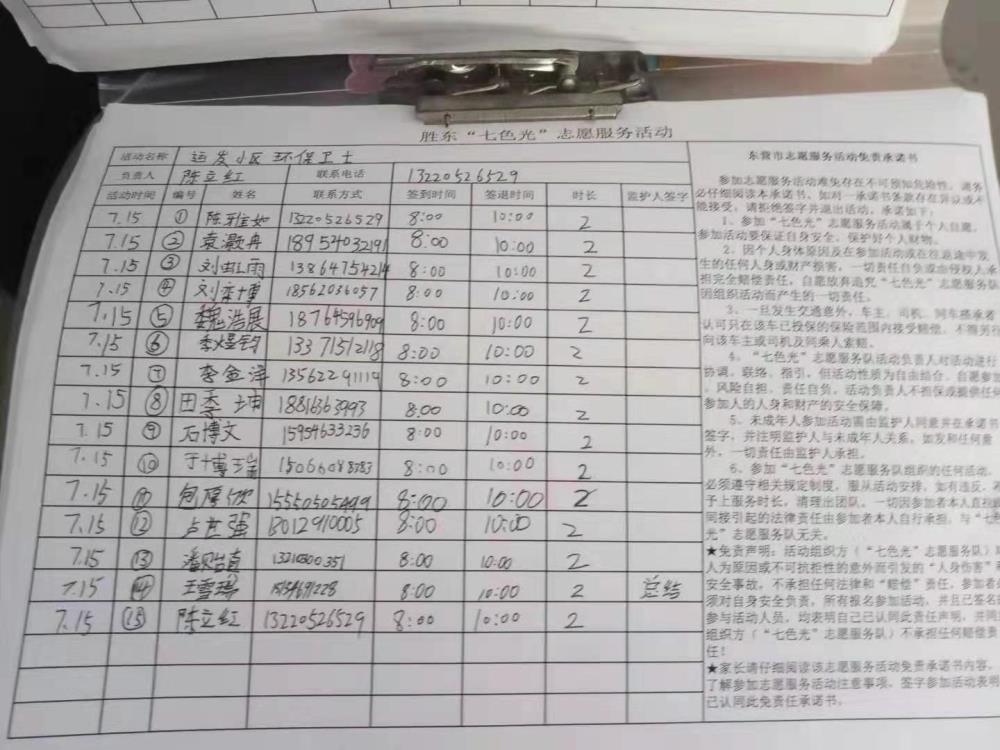 胜东“七色光”志愿服务活动
活动名称 运发小区环保卫士
负责人 陈立红 联系电话 13220526529
活动时间 编号 姓名 联系方式 签到时间 签退时间 时长 监护人签字
7.15 ① 陈雅如 13220526529 8:00 10:00 2
7.15 ② 袁灏冉 189524032191 8:00 10:00 2
7.15 ③ 刘虹雨 13864754214 8:00 10:00 2
7.15 ④ 刘奕博 18562036057 8:00 10:00 2
7.15 ⑤ 魏浩展 18764596909 8:00 10:00 2
7.15 ⑥ 李煜钧 13371512118 8:00 10:00 2
7.15 ⑦ 李金洋 13562291119 8:00 10:00 2
7.15 ⑧ 田季坤 18816363993 8:00 10:00 2
7.15 ⑨ 石博文 15954633236 8:00 10:00 2
7.15 ⑩ 于博瑞 15066088783 8:00 10:00 2
7.15 包厚欣 15550505499 8:00 10:00 2
7.15 ⑫ 卢世强 18012910005 8:00 10:00 2
7.15 ⑬ 潘贻直 8:00 10:00 2
7.15 ⑭ 王雪瑞 8:00 10:00 2 总结
7.15 ⑮ 陈立红 13220526529 8:00 10:00 2
东营市志愿服务活动免责承诺书
参加志愿服务活动难免存在不可预知危险性，请务
必仔细阅读本承诺书，如对一承诺书条款存在异议或不
能接受，请拒绝签字并退出活动，承诺如下：
1、参加“七色光”志愿服务活动属于个人自愿，
参加活动要保证自身安全，保护好个人财物。
2、因个人身体原因及在参加活动或在往返途中发
生的任何人身或财产损害，一切责任自负或由侵权人承
担完全赔偿责任，自愿放弃追究“七色光”志愿服务队
因组织活动而产生的一切责任。
3、一旦发生交通意外，车主、司机、同车搭乘者
认可只在该车已投保的保险范围内接受赔偿，不得另行
向该车主或司机及同乘人索赔。
4、“七色光”志愿服务队活动负责人对活动进行
协调、联络、指引，但活动性质为自由结合，自愿参加
，风险自担，责任自负，活动负责人不担保或提供任何
参加人的人身和财产的安全保障。
5、未成年人参加活动需由监护人同意并在承诺书
签字，并注明监护人与未成年人关系，如发和任何意
外，一切责任由监护人承担。
6、参加“七色光”志愿服务队组织的任何活动，
必须遵守相关规定制度，服从活动安排，如有违反，将
予上服务时长，清理出团队。一切因参加者本人直接或
间接引起的法律责任由参加者本人自行承担，与“七色
光”志愿服务队无关。
★免责声明：活动组织方（“七色光”志愿服务队）对
人为原因或不可抗拒性的意外而引发的“人身伤害”和
安全事故，不承担任何法律和“赔偿”责任，参加者必
须对自身安全负责，所有报名参加活动，并且已签名
参与活动人员，均表明自己已认同此责任声明，并同意
组织方（“七色光”志愿服务队）不承担任何赔偿责
任！
★家长请仔细阅读该志愿服务活动免责承诺书内容，
了解参加志愿服务活动注意事项，签字参加活动表明
已认同此免责任承诺书。